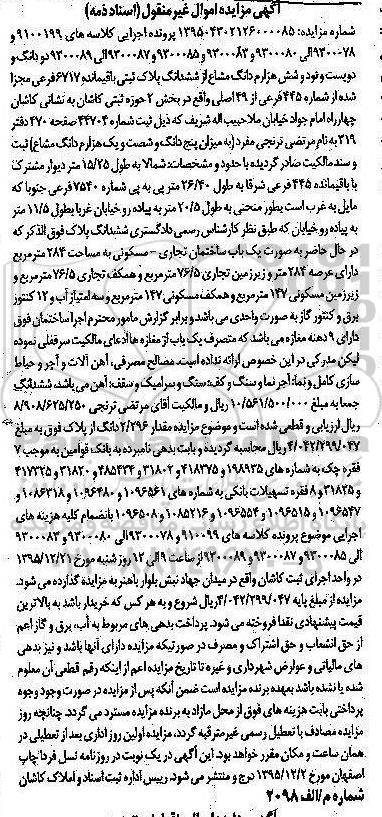 آگهی مزایده اموال غیر منقول (اسناد ذمه)
شماره مزایده: ۱۳۹۵۰۴۳۰۲۱۲۶۰۰۰۰۸۵ پرونده اجرایی کلاسه های ۹۱۰۰۱۹۹ و
۹۳۰۰۰۷۸ الی ۹۳۰۰۰۸۰ و ۹۳۰۰۰۸۳ و ۹۳۰۰۰۸۵ و ۹۳۰۰۰۸۷ الی ۹۳۰۰۰۸۹ دو دانگ و
دویست و نود و شش هزارم دانگ مشاع از ششدانگ پلاک ثبتی باقیمانده ۶۷۱۷ فرعی مجزا
شده از شماره ۴۴۵ فرعی از ۴۹ اصلی واقع در بخش ۲ حوزه ثبتی کاشان به نشانی کاشان
چهارراه امام جواد خیابان ملاحبیب اله شریف که ذیل ثبت شماره ۴۴۷۰۴ صفحه ۴۷۰ دفتر
۳۱۹ به نام مرتضی ترنجی مفرد (به میزان پنج دانگ و شصت و یک هزارم دانگ مشاع) ثبت
و سند مالکیت صادر گردیده با حدود و مشخصات: شمالا به طول ۱۵/۲۵ متر دیوار مشترک
با باقیمانده ۴۴۵ فرعی شرقا به طول ۲۶/۴۰ متر پی به پی شماره ۷۵۴۰ فرعی جنوبا که
مایل به غرب است بطور منحنی به طول ۲۰/۵ متر به پیاده رو خیابان غربا بطولی ۱۱/۵ متر
به پیاده رو خیابان که طبق نظر کارشناس رسمی دادگستری ششدانگ پلاک فوق الذکر که
در حال حاضر به صورت یک باب ساختمان تجاری - مسکونی به مساحت ۲۸۴ متر مربع
دارای عرصه ۲۸۴ متر و زیرزمین تجاری ۷۶/۵ متر مربع و همکف تجاری ۷۶/۵ متر مربع و
زیرزمین مسکونی ۱۴۷ متر مربع و همکف مسکونی ۱۴۷ متر مربع و سه امتیاز آب و ۱۲ کنتور
برق و کنتور گاز به صورت واحدی می باشد و برابر گزارش مامور محترم اجرا ساختمان فوق
دارای ۹ دهنه مغازه می باشد که متصرف یک باب از مغازه ها ادعای مالکیت سرقفلی نموده
لیکن مدرکی در این خصوص ارائه نداده است. مصالح مصرفی، آهن آلات و آجر و حیاط
سازی کامل و نما، آجرنما و سنگ و کف، سنگ و سرامیک و سقف، آهن می باشد، ششدانگ
جمعا به مبلغ ۱۰/۵۶۱/۵۰۰/۰۰۰ ریال و مالکیت آقای مرتضی ترنجی ۸/۹۰۸/۶۲۵/۲۵۰
ریال ارزیابی و قطعی شده است و موضوع مزایده مقدار ۲/۲۹۶ دانگ از پلاک فوق به مبلغ
۴/۰۴۲/۲۹۹/۰۴۷ ریال محاسبه گردیده و بابت بدهی نامبرده به بانک قوامین به موجب ۷
فقره چک به شماره های ۱۹۸۹۳۵ و ۴۱۸۳۷۵ و ۳۱۸۰۲ و ۴۸۵۴۳۴ و ۳۱۸۲۰ و ۴۱۷۳۲۵
و ۳۱۸۲۵ و ۸ فقره تسهیلات بانکی به شماره های ۱۰۹۶۵۶۱ و ۱۰۹۶۴۸۰ و ۱۰۸۶۳۱۸ و
۱۰۹۶۵۴۷ و ۱۰۹۶۵۱۵ و ۱۰۹۶۵۵۴ و ۱۰۸۵۲۱۶ و ۱۰۹۶۵۰۸ بانضمام کلیه هزینه های
اجرایی موضوع پرونده کلاسه های ۹۱۰۰۱۹۹ و ۹۳۰۰۰۷۸ الی ۹۳۰۰۰۸۰ و ۹۳۰۰۰۸۳
الی ۹۳۰۰۰۸۵ و ۹۳۰۰۰۸۷ الی ۹۳۰۰۰۸۹ از ساعت ۹ الی ۱۲ روز شنبه مورخ ۱۳۹۵/۱۲/۲۱
در واحد اجرای ثبت کاشان واقع در میدان جهاد نبش بلوار باهنر به مزایده گذارده می شود.
مزایده از مبلغ پایه ۴/۰۴۲/۲۹۹/۰۴۷ ریال شروع و به هر کس که خریدار باشد به بالاترین
قیمت پیشنهادی نقدا فروخته می شود. پرداخت بدهی های مربوط به آب، برق و گاز اعم
از حق انشعاب و حق اشتراک و مصرف در صورتیکه مزایده دارای آنها باشد و نیز بدهی
های مالیاتی و عوارض شهرداری و غیره تا تاریخ مزایده اعم از اینکه رقم قطعی آن معلوم
شده یا نشده باشد بعهده برنده مزایده است ضمن آنکه پس از مزایده در صورت وجود وجوه
پرداختی بابت هزینه های فوق از محل مازاد به برنده مزایده مسترد می گردد. چنانچه روز
مزایده مصادف با تعطیل رسمی غیرمترقبه گردد، مزایده اولین روز اداری بعد از تعطیلی در
همان ساعت و مکان مقرر خواهد بود. این آگهی در یک نوبت در روزنامه نسل فردا چاپ
اصفهان مورخ ۱۳۹۵/۱۲/۲ درج و منتشر می شود. رییس اداره ثبت اسناد و املاک کاشان
شماره م/الف ۲۰۹۸